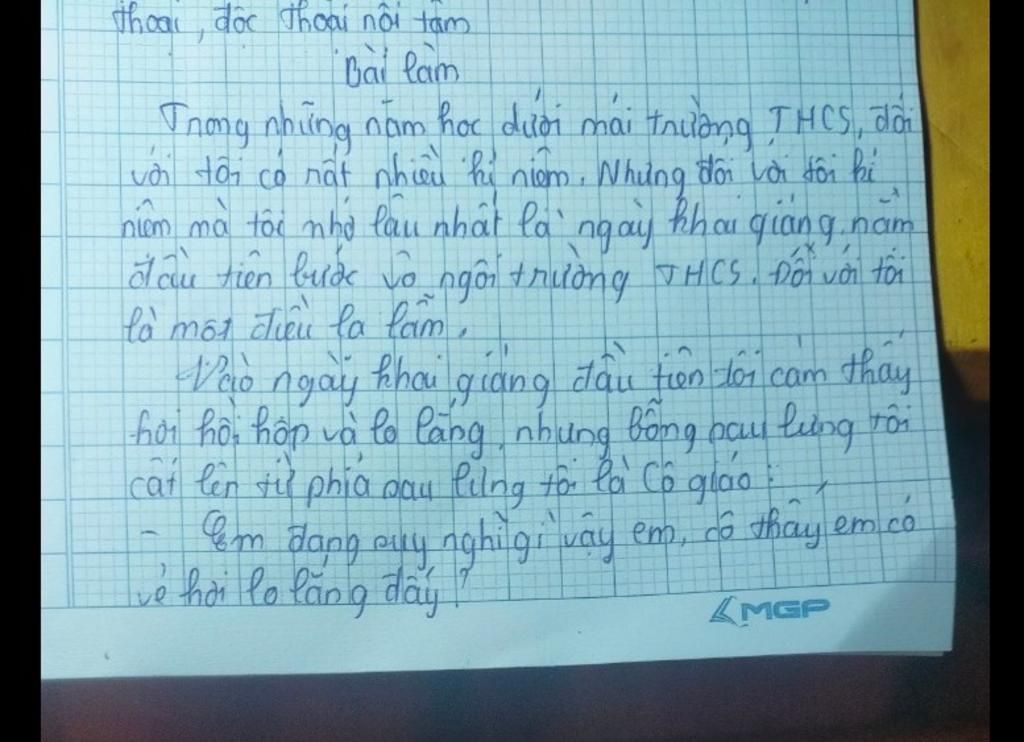 thoại, độc thoại nội tâm
Bài làm
Trong những năm học dưới mái trường THCS, đối
với tôi có rất nhiều kỉ niệm. Nhưng đối với tôi kỉ
niệm mà tôi nhớ lâu nhất là ngày khai giảng năm
đầu tiên bước vô ngôi trường THCS. Đối với tôi
là một điều lạ lẫm.
Vào ngày khai giảng đầu tiên tôi cảm thấy
hơi hồi hộp và lo lắng, nhưng bỗng sau lưng tôi
cất lên từ phía sau lưng tôi là Cô giáo :
- Em đang suy nghĩ gì vậy em, cô thấy em có
vẻ hơi lo lắng đấy?
MGP